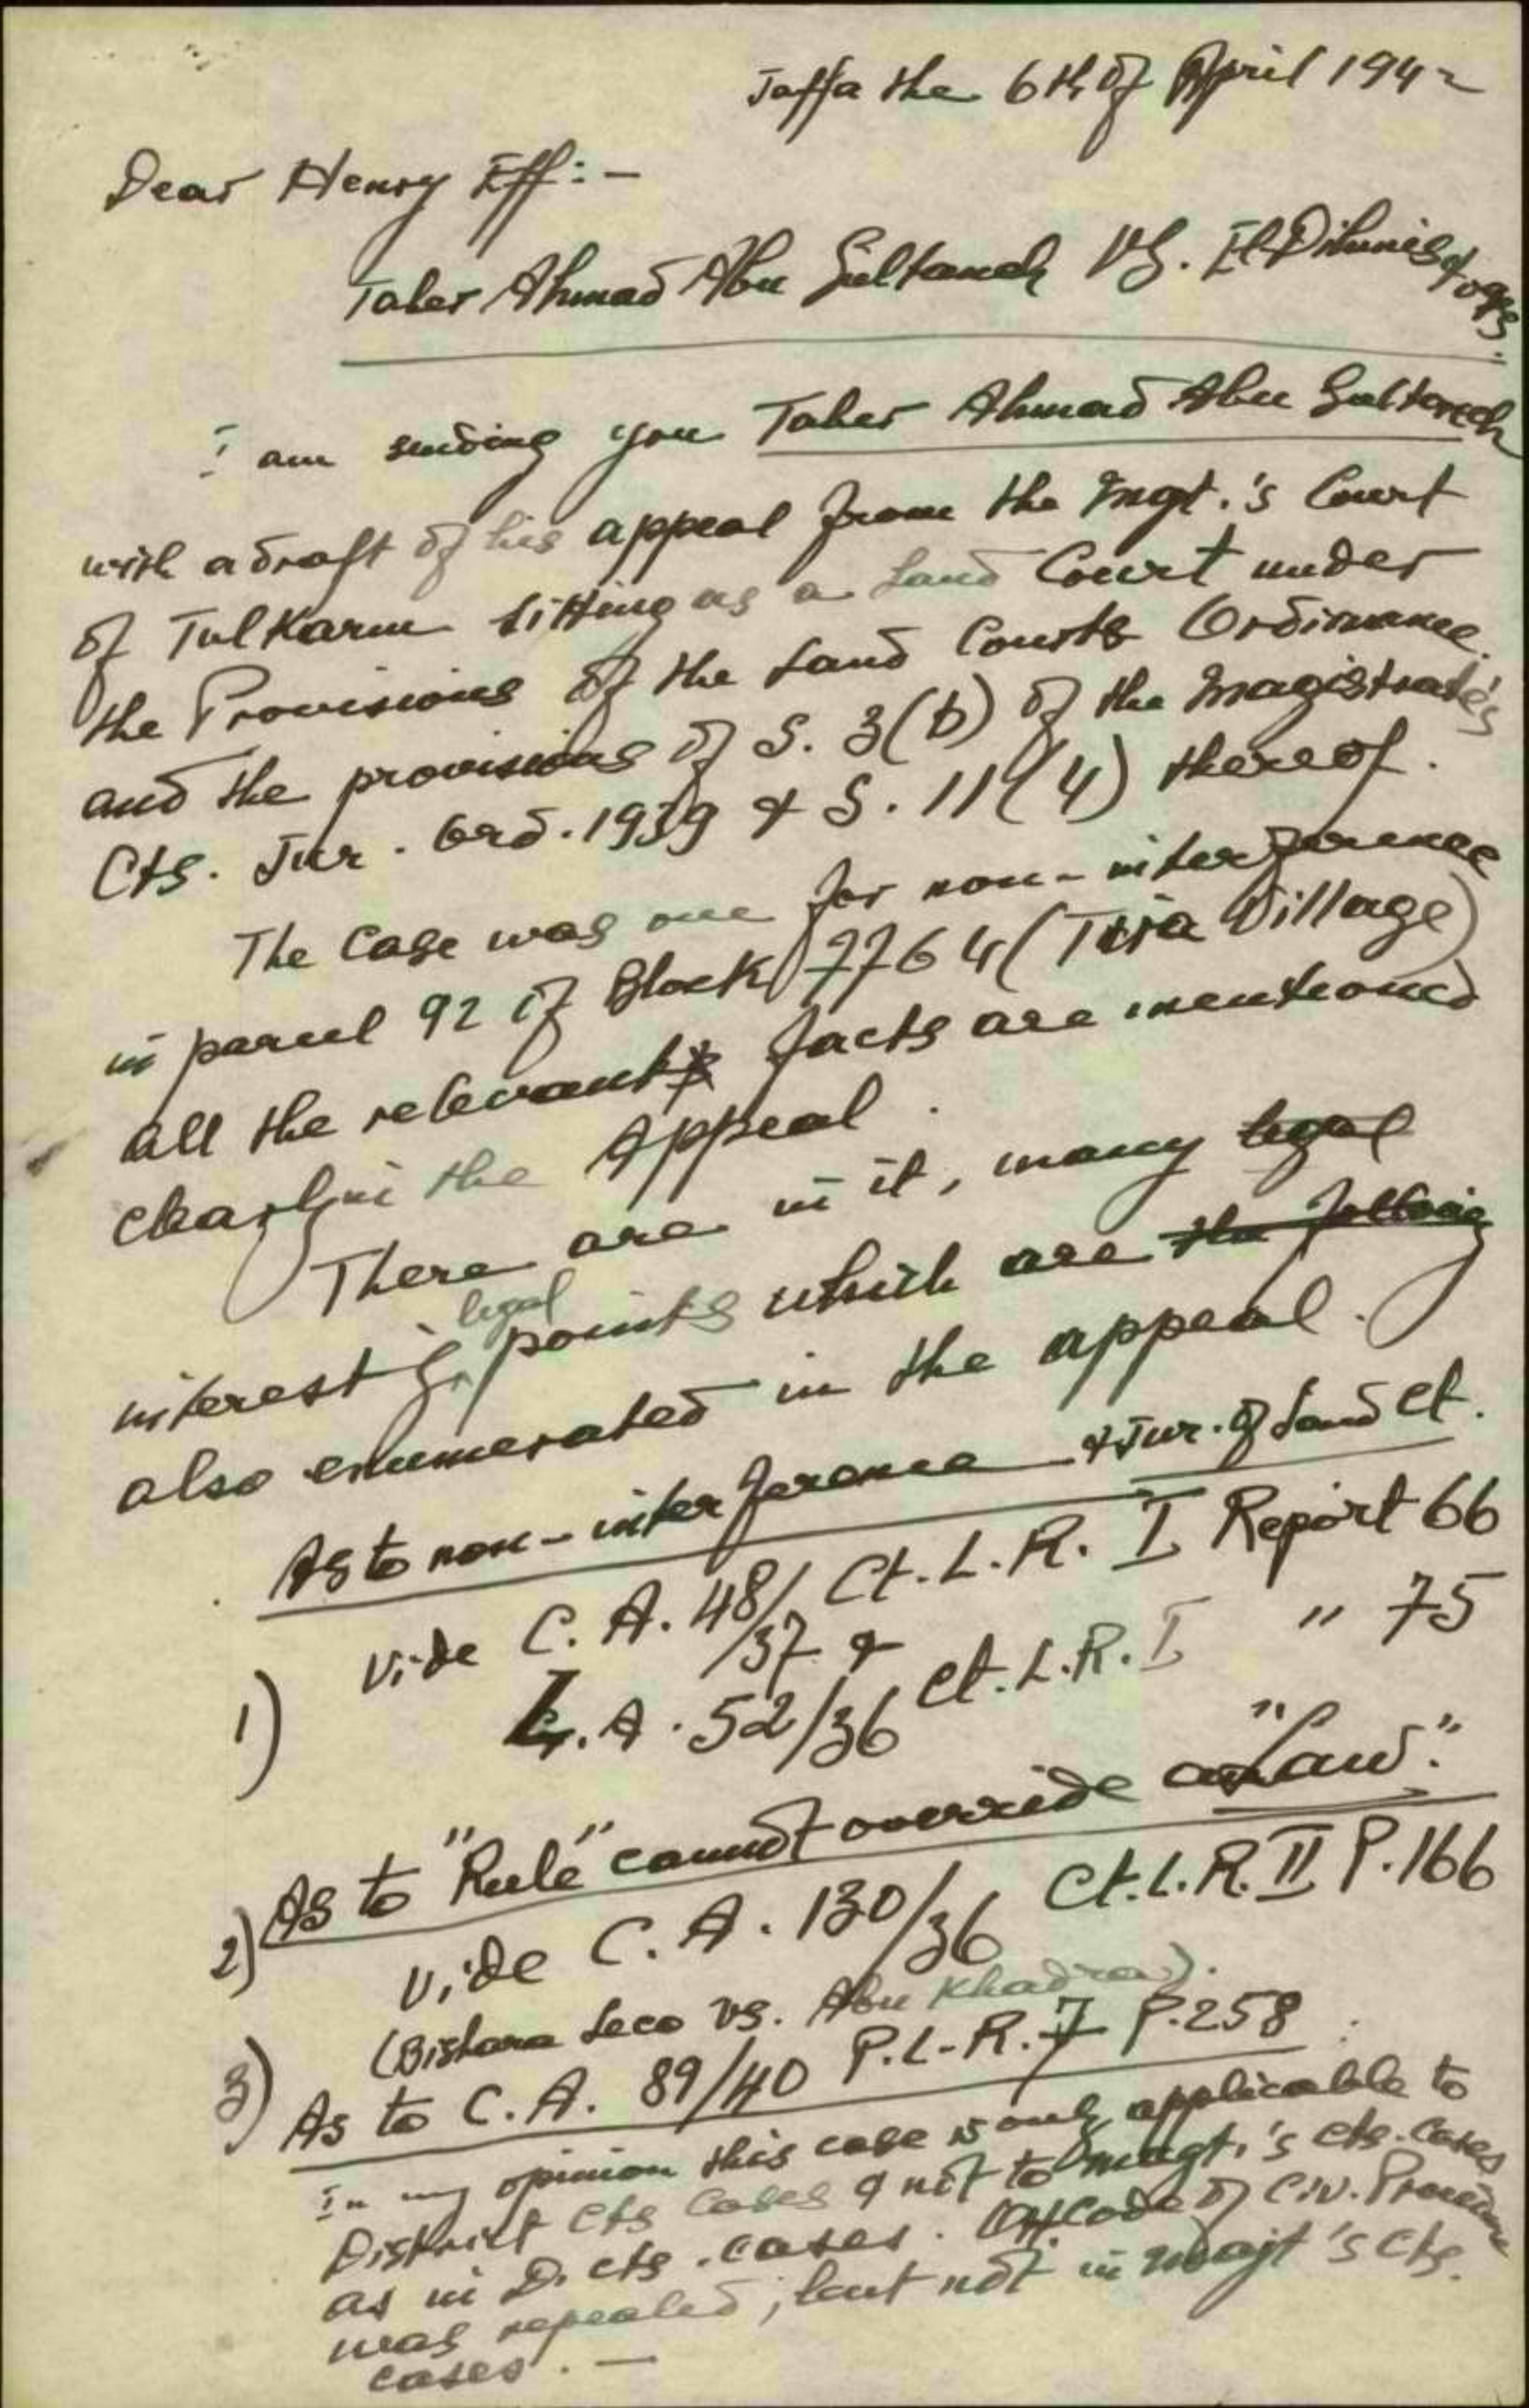 Jaffa the 6th of April 1942
Dear Henry Eff:-
Taher Ahmad Abu Sultaneh VS. El-Dihmis & ors.
I am sending you Taher Ahmad Abu Sultaneh
with a draft of his appeal from the Mgt.'s Court
of Tulkarm sitting as a Land Court under
the Provisions of the Land Courts Ordinance
and the provisions of S. 3(b) of the Magistrate's
Cts. Jur. Ord. 1939 & S. 11(4) thereof.
The case was one for non-interference
in parcel 92 of Block 7764 (Tira Village)
all the relevant facts are mentioned
clearly in the Appeal.
There are in it, many legal
interestg legal points which are the following
also enumerated in the appeal.
As to non-interference & Jur. of Land Ct.
1) Vide C. A. 48/37 & Ct. L. R. I Report 66
L. A. 52/36 Ct. L. R. I " 75
2) As to "Rule" cannot override a "Law".
Vide C. A. 130/36 Ct. L. R. II P. 166
(Bishara Seco vs. Abu Khadra).
3) As to C. A. 89/40 P. L. R. 7 P. 258
In my opinion this case is only applicable to
District Cts Cases & not to Magt.'s cts. cases
as in D. cts. cases. Ott. Code of Civ. Procedure
was repealed, but not in Magt's Cts.
cases. —